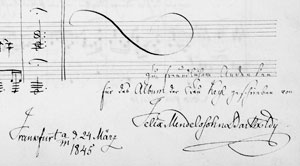 Zu freundlichem Andenken
für das Album der Frau geschrieben von
Felix Mendelssohn Bartholdy
Frankfurt a/m d. 24 März
1845